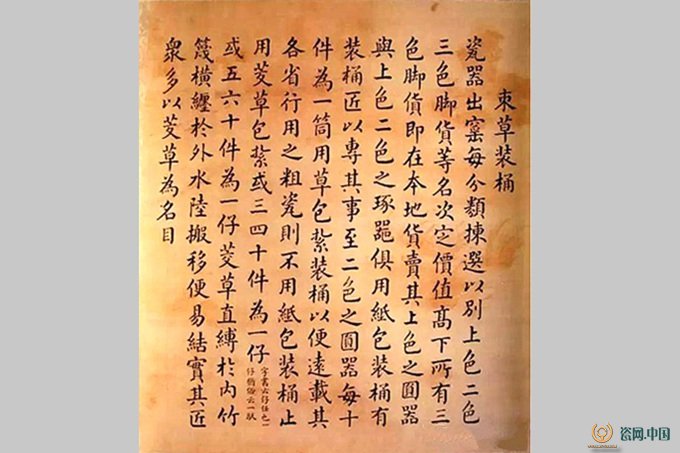 束草装桶
瓷器出窯每分類揀選以別上色二色
三色脚貨等名次定價值髙下所有三
色脚貨即在本地貨賣其上色之圓器
與上色二色之琢器俱用紙包装桶有
装桶匠以專其事至二色之圓器每十
件為一筒用草包紮装桶以便遠載其
各省行用之粗瓷則不用紙包装桶止
用茭草包紮或三四十件為一仔字書云仔任也一仔猶俗云一馱
或五六十件為一仔茭草直縛於内竹
篾橫纏於外水陸搬移便易結實其匠
衆多以茭草為名目
瓷网.中国